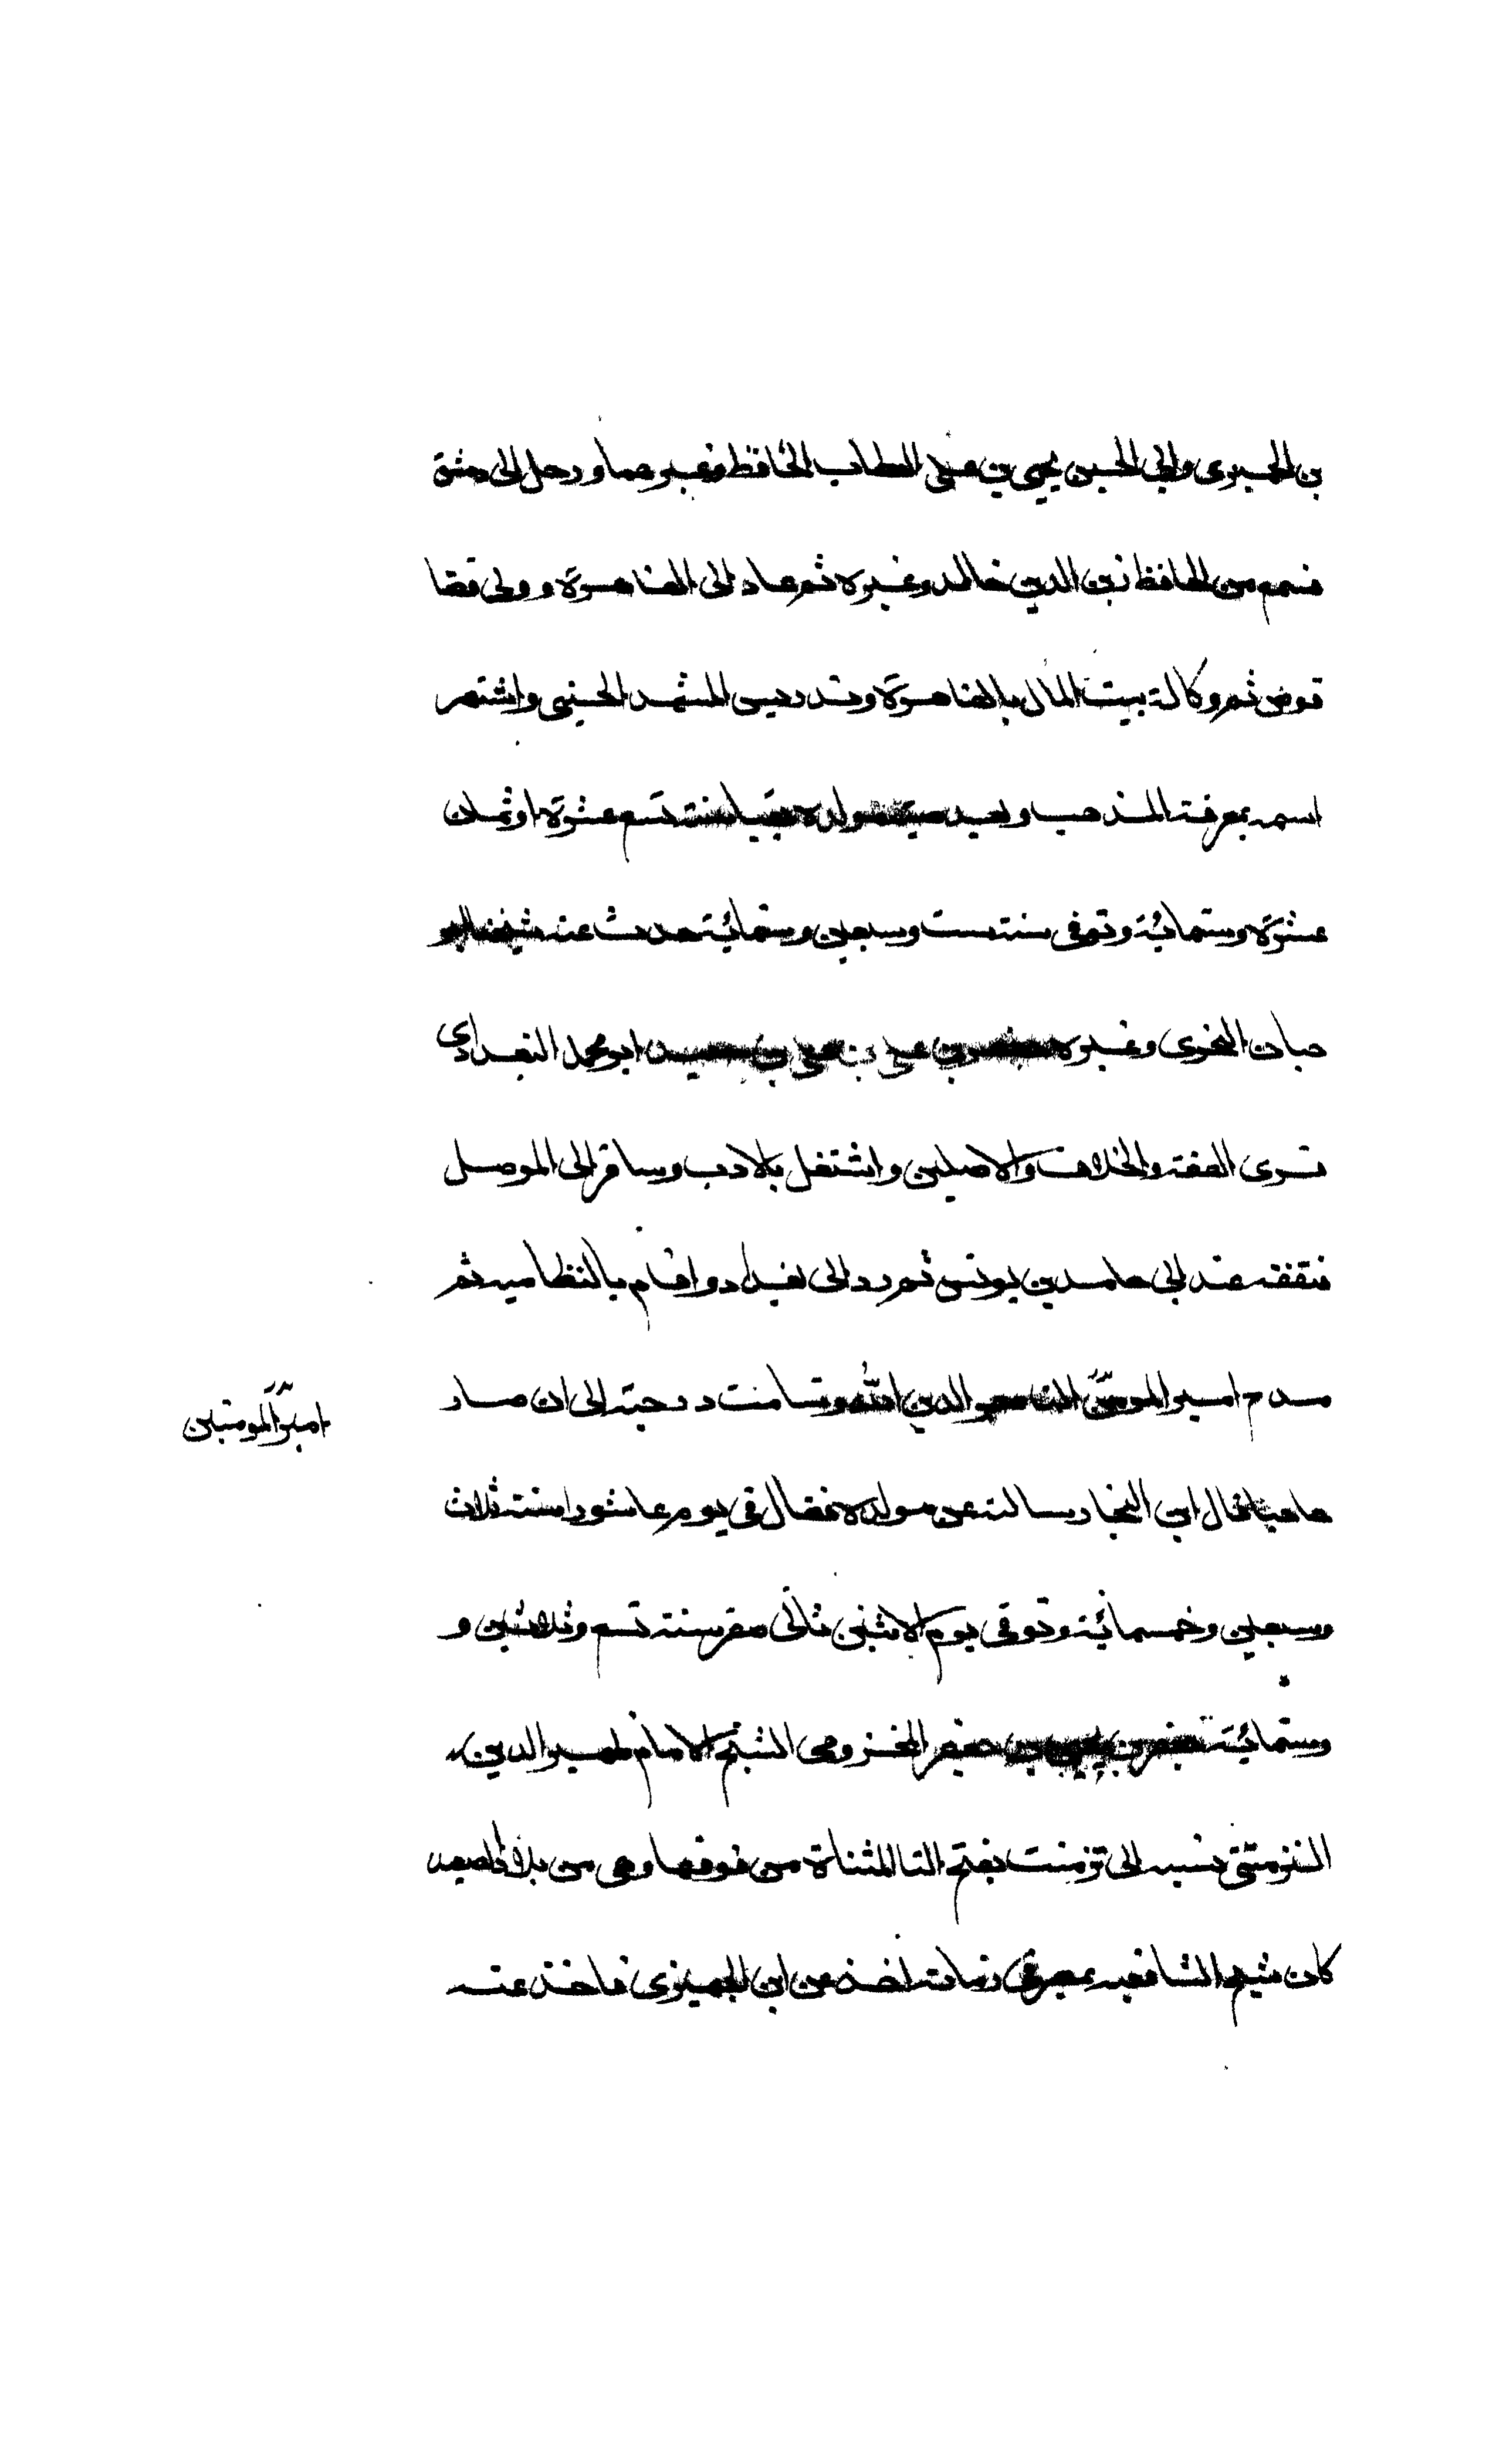 بن الجميزى وابي الحسين يحيى بن علي العطاب الحافظ وغيرهما ورحل الى دمشق
فسمع من الحافظ زين الدين خالد وغيره ثم عاد الى القاهرة وولى قضا
قوص ثم وكالة بيت المال بالقاهرة وتدريس المشهد الحسيني واشتهر
اسمه بمعرفة المذهب وبعد صيته مولده سنة تسع عشرة او ثمان
عشرة وستمائة وتوفى سنة ست وسبعين وستمائة حدث عنه شيخنا ابو
حيان النحوى وغيره بن علي بن علي بن سعيد ابو محمد البغدادي
قرى الفقه والخلاف والاصلين واشتغل بالادب وسافر الى الموصل
فتفقه عند ابي حامد بن يونس ثم رد الى بغداد واقام بالنظاميه ثم
مدح امير المومنين الناصر لدين الله وتسامت درجته الى ان صار
امير المومنين
حاجبا قال ابن النجار سالته عن مولده فقال في يوم عاشورا سنة ثلاث
وسبعين وخمسمائة وتوفى يوم الاثنين ثانى صفر سنة تسع وثلاثين و
وستمائة جعفر بن يحيى بن جعفر المخزومى الشيخ الامام ظهير الدين
التزمنتي نسبه الى تزمنت بفتح التا المثناة من فوقها وهى من بلاد الصعيد
كان شيخ الشافعيه بمصر في زمانه اخذ عن ابن الجميزى فاخذ عنه